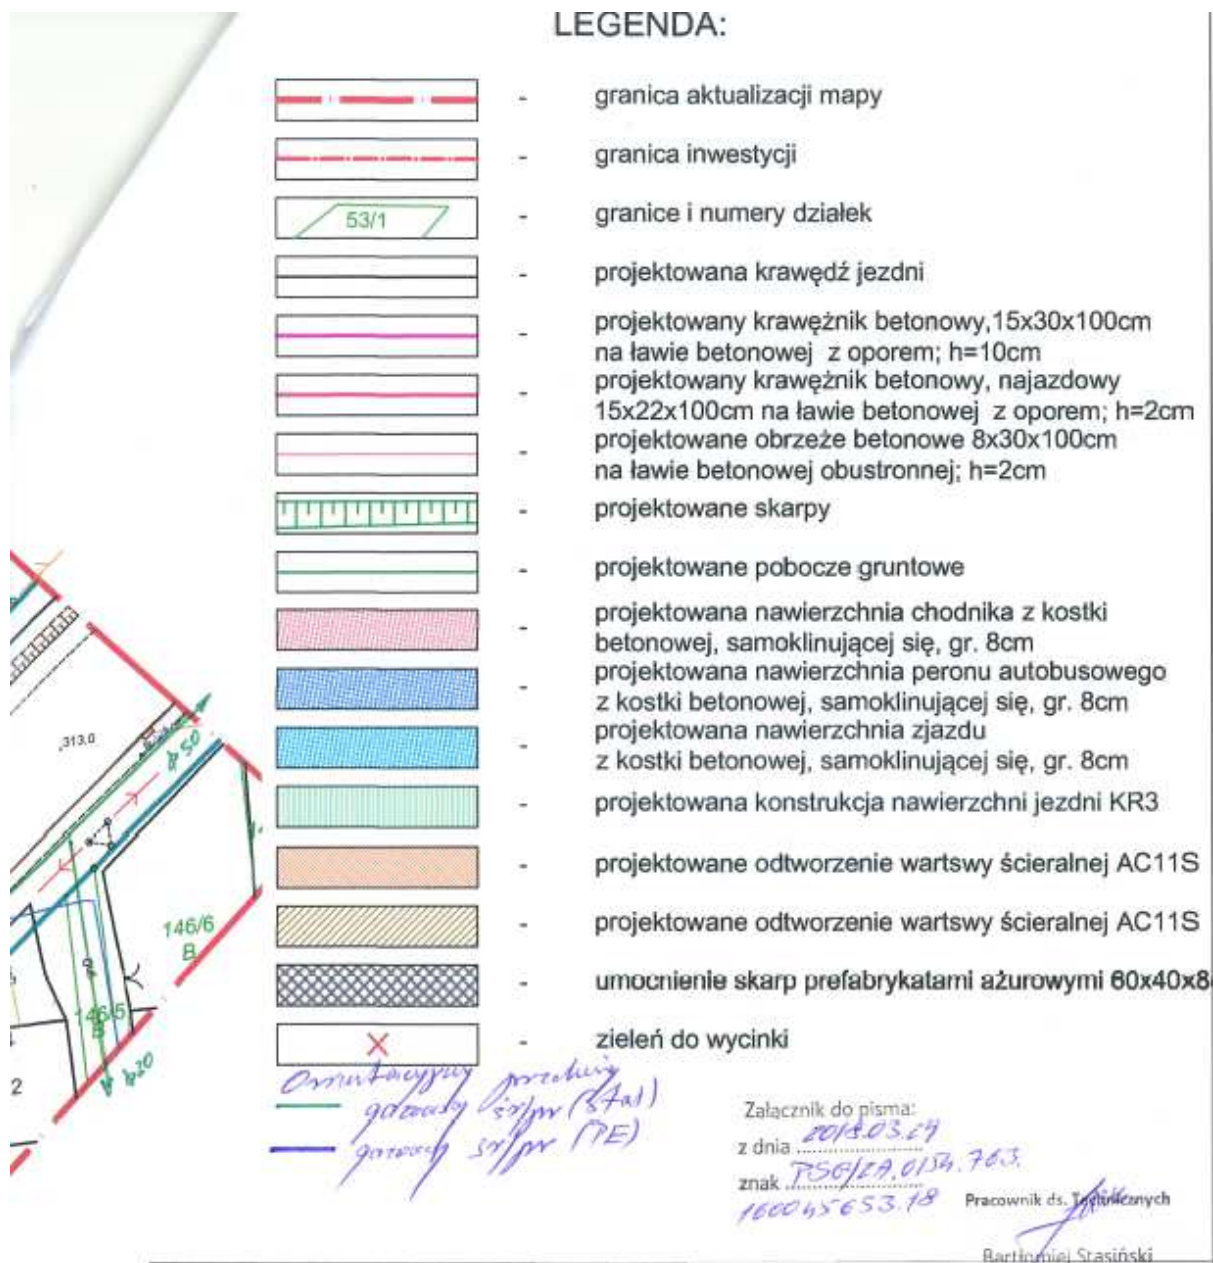 LEGENDA:
- granica aktualizacji mapy
- granica inwestycji
53/1 - granice i numery działek
- projektowana krawędź jezdni
- projektowany krawężnik betonowy,15x30x100cm
na ławie betonowej z oporem; h=10cm
- projektowany krawężnik betonowy, najazdowy
15x22x100cm na ławie betonowej z oporem; h=2cm
- projektowane obrzeże betonowe 8x30x100cm
na ławie betonowej obustronnej; h=2cm
- projektowane skarpy
- projektowane pobocze gruntowe
- projektowana nawierzchnia chodnika z kostki
betonowej, samoklinującej się, gr. 8cm
- projektowana nawierzchnia peronu autobusowego
z kostki betonowej, samoklinującej się, gr. 8cm
- projektowana nawierzchnia zjazdu
z kostki betonowej, samoklinującej się, gr. 8cm
- projektowana konstrukcja nawierzchni jezdni KR3
- projektowane odtworzenie wartswy ścieralnej AC11S
- projektowane odtworzenie wartswy ścieralnej AC11S
- umocnienie skarp prefabrykatami ażurowymi 60x40x8
- zieleń do wycinki
313.0
50
146/6
B
146/5
B
2
Orientacyjny przebieg
gazociąg śr/pr (stal)
gazociąg śr/pr (PE)
Załącznik do pisma:
z dnia 2018.03.29
znak PSG/ZA.0154.763.
160045653.18
Pracownik ds. Technicznych
Bartłomiej Stasiński